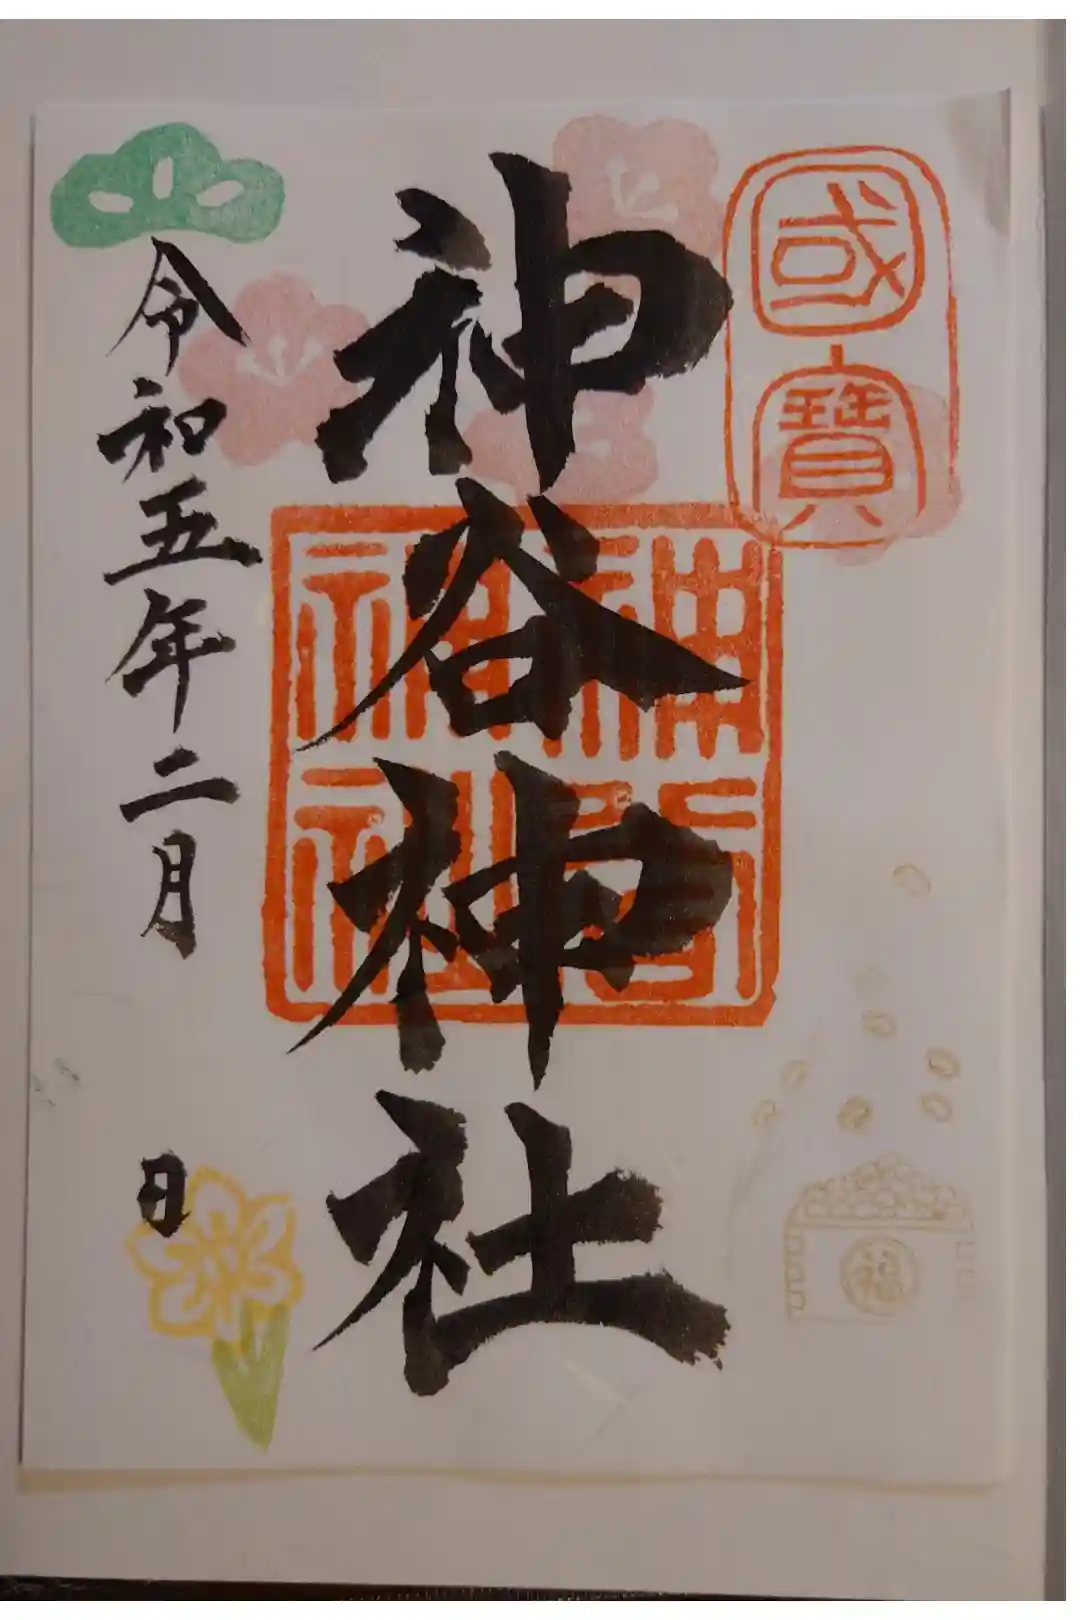 國寶
神谷神社
神谷神社
令和五年二月 日
福